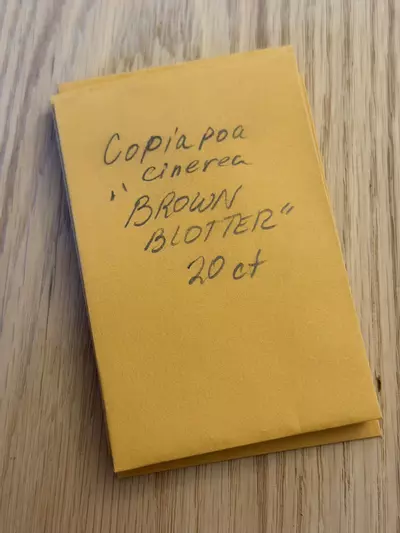 Copiapoa
cinerea
"BROWN
BLOTTER"
20 ct